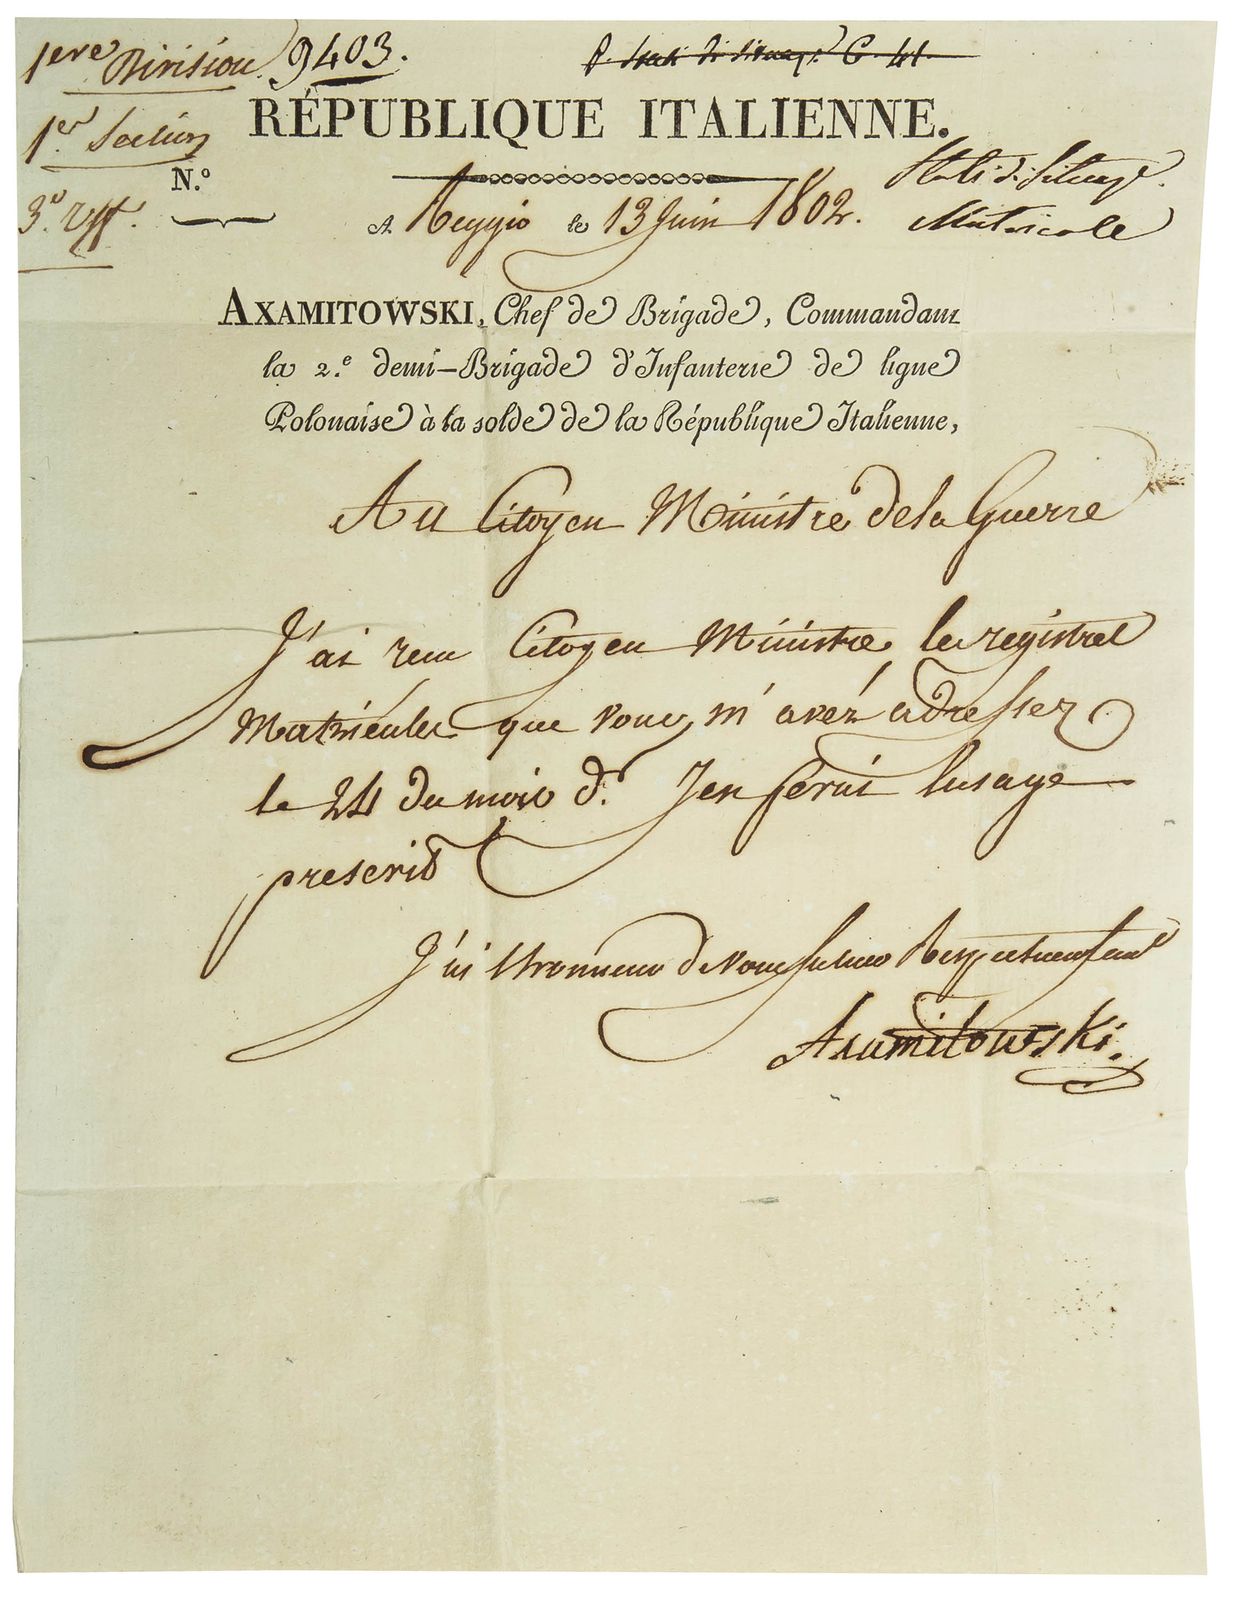 1ere Division. 9403.
1er Section
3.e
RÉPUBLIQUE ITALIENNE.
N.º
Stati di Situaz.e
Matricole
A Reggio le 13 Juin 1802.
AXAMITOWSKI, Chef de Brigade, Commandant
la 2.e demi-Brigade d'Infanterie de ligne
Polonaise à la solde de la République Italienne,
Au Citoyen Ministre de la Guerre
J'ai recu Citoyen Ministre le registre
Matricules que vous m'avez adresser
le 24 du mois d.r Jen ferai lusage
prescrit
J'ai lhonneur de vous saluer Respectueusement
Axamitowski.